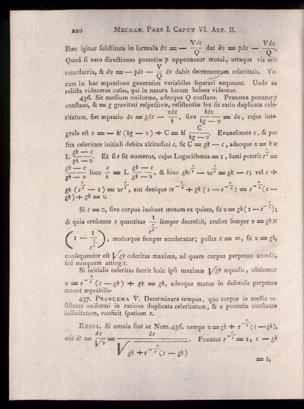 220 MECHAN. PARS I. CAPUT VI. ART. II.
Hæc igitur substituta in formula dv = — Vdx/Q dat dv = pdx — Vdx/Q.
Quod si vero directiones potentiæ p opponantur motui, utraque vis erit
retardatrix, & dv = — pdx — V/Q dx dabit decrementum celeritatis. Ve-
rum in hac æquatione generatim variabiles separari nequeunt. Unde ea
relicta videamus casus, qui in natura locum habere videntur.
436. Sit medium uniforme, adeoque Q constans. Præterea ponatur p
constans, & = g gravitati respectivæ, resistentiæ lex sit ratio duplicata cele-
ritatum, fiet æquatio dv = gdx — vdx/k, sive kdv/(kg — v) = dx, cujus inte-
grale est x = — kl (kg — v) + C = kl C/(kg — v). Evanescente x, & po-
sita celeritate initiali debita altitudini c, fit C = gk — c, adeoque x = k ×
L (gk — c)/(gk — v). Et si e sit numerus, cujus Logarithmus = 1, sumi poterit e^(x/k) =
(gk — c)/(gk — v) loco x/k = L (gk — c)/(gk — v), & hinc gke^(x/k) — ve^(x/k) = gk — c; vel c +
gk (e^(x/k) — 1) = ve^(x/k), aut denique ce^(—x/k) + gk (1 — e^(—x/k)) = e^(—x/k) (c —
gk) + gk = v.
Si c = 0, sive corpus inchoet motum ex quiete, fit v = gk (1 — e^(—x/k));
& quia crescente x quantitas 1/e^(x/k) semper decrescit, crescet semper v = gk ×
(1 — 1/e^(x/k)), motusque semper acceleratur; posita x = ∞, fit v = gk,
consequenter est √gk celeritas maxima, ad quam corpus perpetuo accedit,
sed nunquam attingit.
Si initialis celeritas fuerit huic ipsi maximæ √gk æqualis, obtinetur
v = e^(—x/k) (c — gk) + gk = gk, adeoque motus in descensu perpetuo
manet æquabilis.
437. PROBLEMA V. Determinare tempus, quo corpus in medio re-
sistente uniformi in ratione duplicata celeritatum, & a potentia constante
sollicitatum, conficit spatium x.
RESOL. Si omnia sint ut Num. 436. nempe v = gk + e^(—x/k) (c — gk),
erit dt = dx/√v = dx/√(gk + e^(—x/k) (c — gk)). Ponatur e^(—x/k) = z, c — gk
= b,